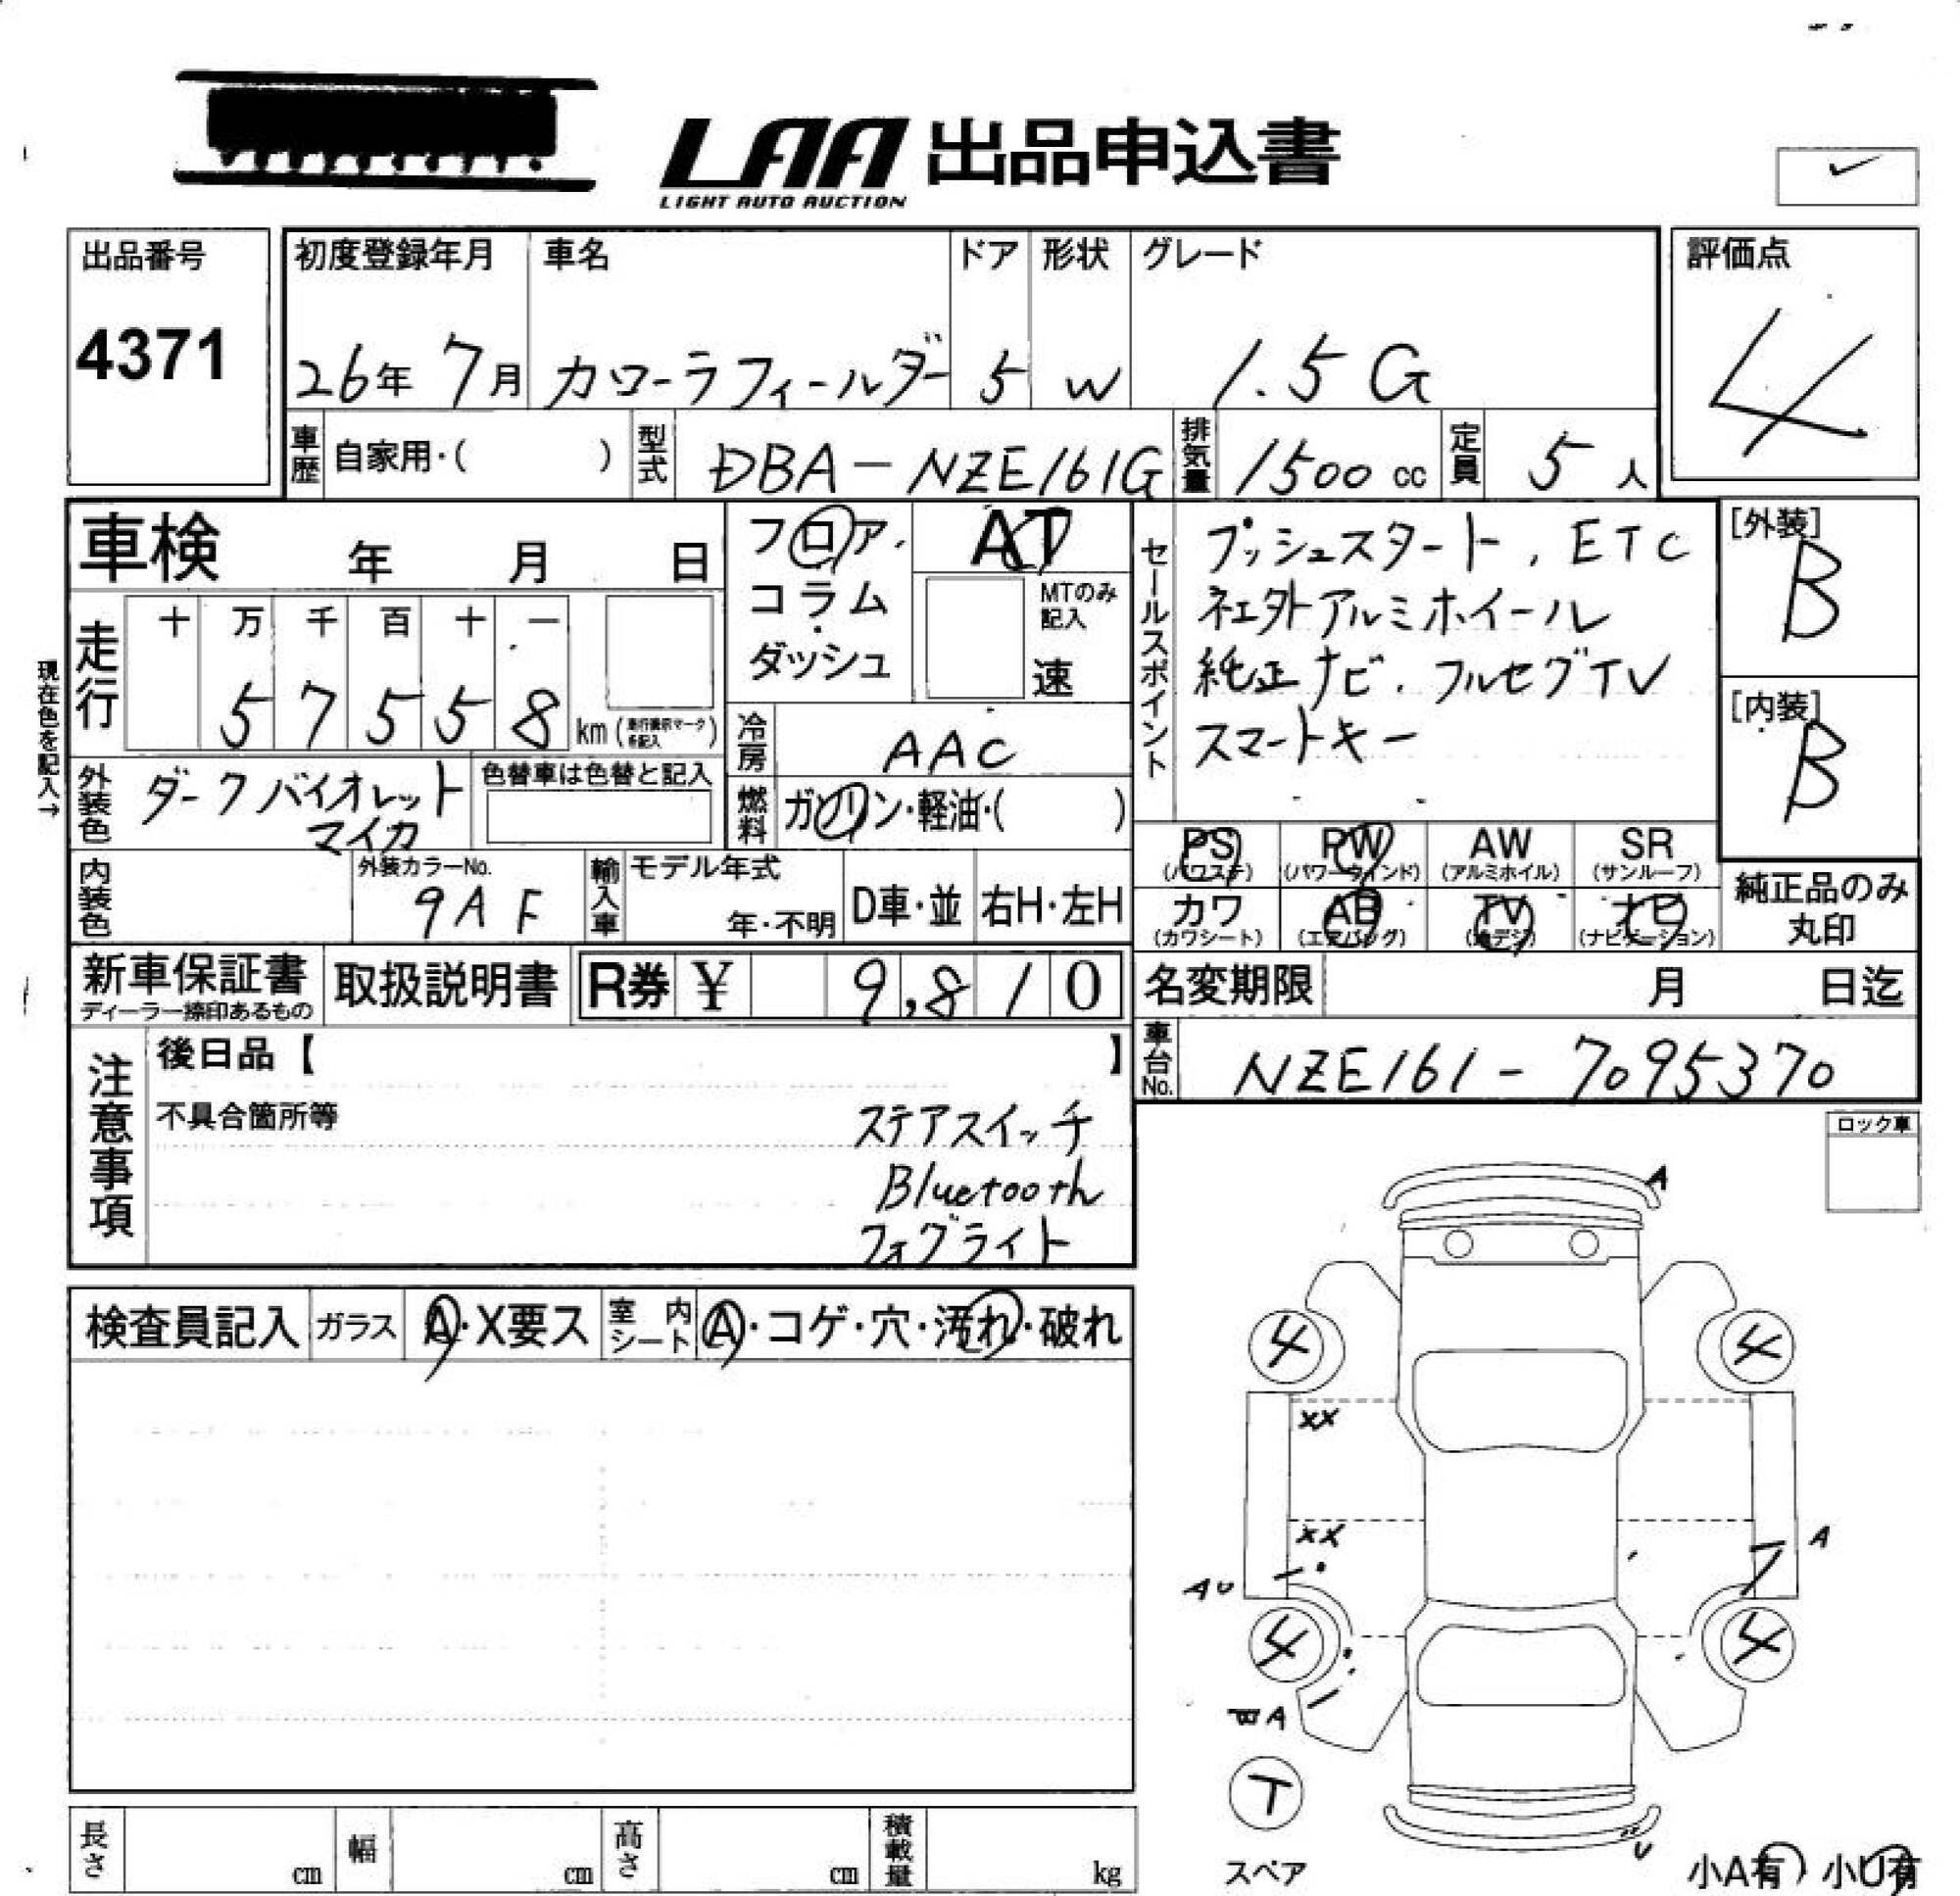 LAA 出品申込書
LIGHT AUTO AUCTION
出品番号
4371
初度登録年月
26年 7月
車名
カローラフィールダー
ドア
5
形状
W
グレード
1.5 G
評価点
4
車歴 自家用・( )
型式 DBA-NZE161G
排気量 1500 cc
定員 5 人
車検 年 月 日
フロア・
コラム・
ダッシュ
AT
MTのみ
記入
速
セールスポイント
プッシュスタート, ETC
社外アルミホイール
純正ナビ, フルセグTV
スマートキー
[外装]
B
[内装]
B
現在色を記入→
走行
十 万 千 百 十 一
5 7 5 5 8 km
冷房 AAC
燃料 ガソリン・軽油・( )
外装色 ダークバイオレット
マイカ
色替車は色替と記入
内装色
外装カラーNo.
9AF
輸入車
モデル年式
年・不明
D車・並
右H・左H
PS
(パワステ)
PW
(パワーウインド)
AW
(アルミホイル)
SR
(サンルーフ)
カワ
(カワシート)
AB
(エアバッグ)
TV
(地デジ)
ナビ
(ナビゲーション)
純正品のみ
丸印
新車保証書
ディーラー捺印あるもの
取扱説明書
R券 ¥ 9,810
名変期限 月 日迄
車台No. NZE161-7095370
注意事項
後日品【 】
不具合箇所等
ステアスイッチ
Bluetooth
フォグライト
ロック車
検査員記入
ガラス A・X要ス
室内シート A・コゲ・穴・汚れ・破れ
A
4 4
XX
XX
A
AU
4 4
WA
T
スペア
U
小A有 小U有
長さ cm
幅 cm
高さ cm
積載量 kg